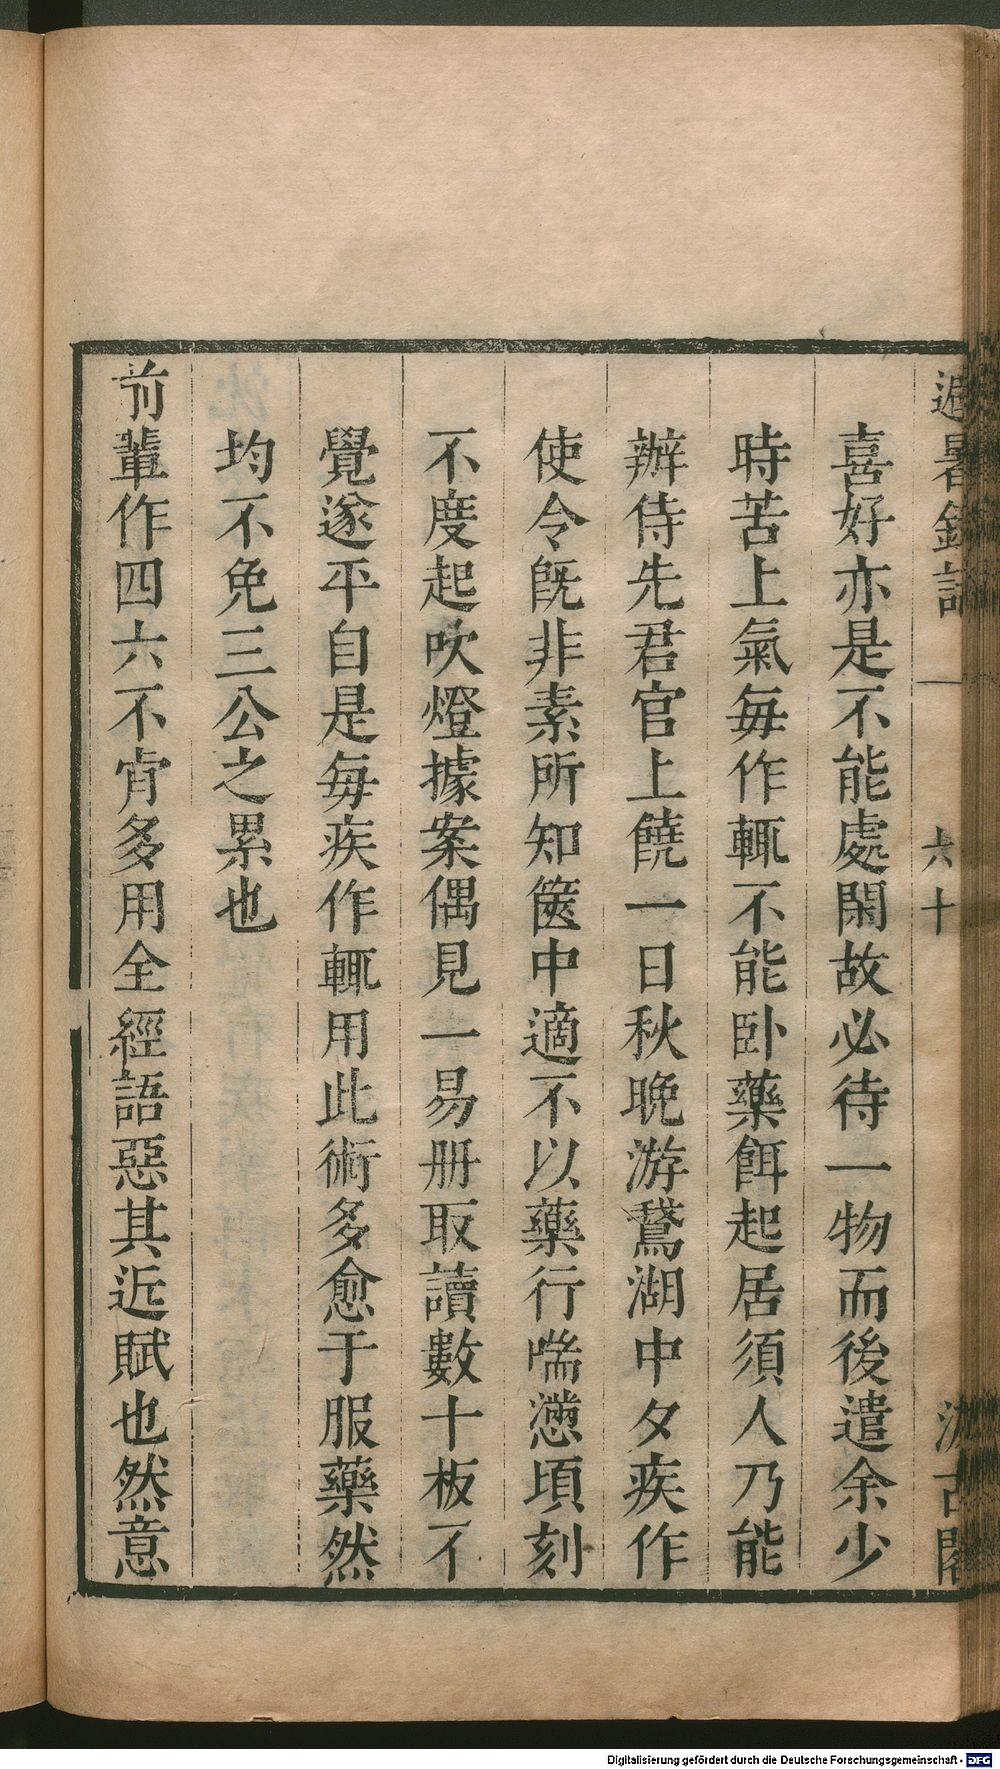 避暑錄話
六十
汲古閣
喜好亦是不能處閑故必待一物而後遣余少
時苦上氣每作輒不能臥藥餌起居須人乃能
辦侍先君官上饒一日秋晚游鵞湖中夕疾作
使令旣非素所知篋中適不以藥行喘懣頃刻
不度起吹燈據案偶見一易册取讀數十板不
覺遂平自是每疾作輒用此術多愈于服藥然
均不免三公之累也
前輩作四六不肯多用全經語惡其近賦也然意
Digitalisierung gefördert durch die Deutsche Forschungsgemeinschaft - DFG